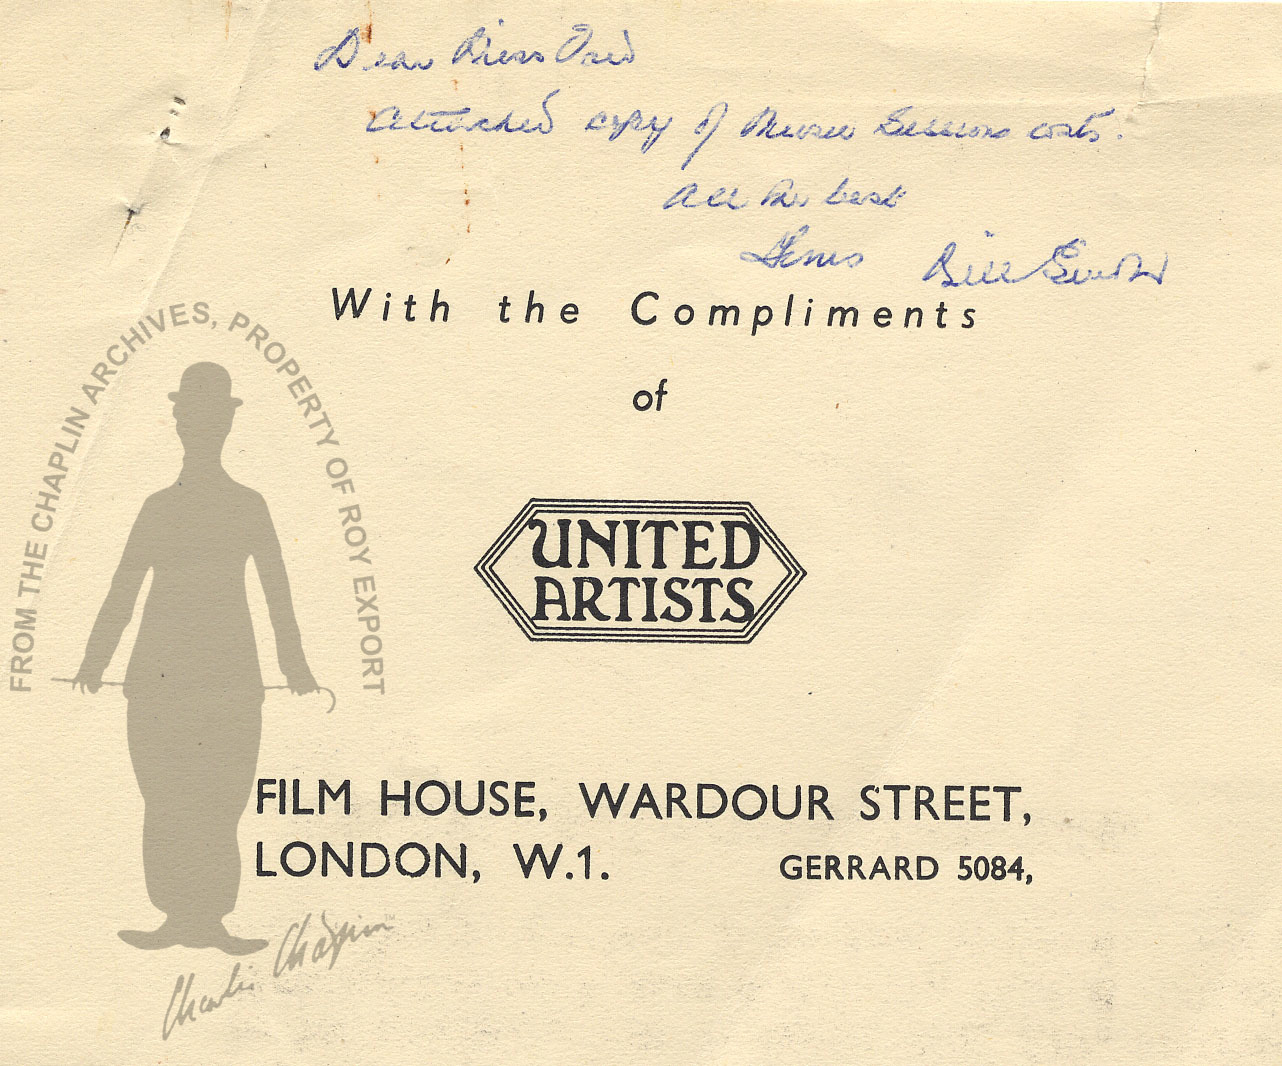 Dear Miss Ford
Attached copy of Music Sessions costs.
All the best
Yours Bill
With the Compliments
of
UNITED
ARTISTS
FILM HOUSE, WARDOUR STREET,
LONDON, W.1. GERRARD 5084,
FROM THE CHAPLIN ARCHIVES, PROPERTY OF ROY EXPORT
Charlie Chaplin